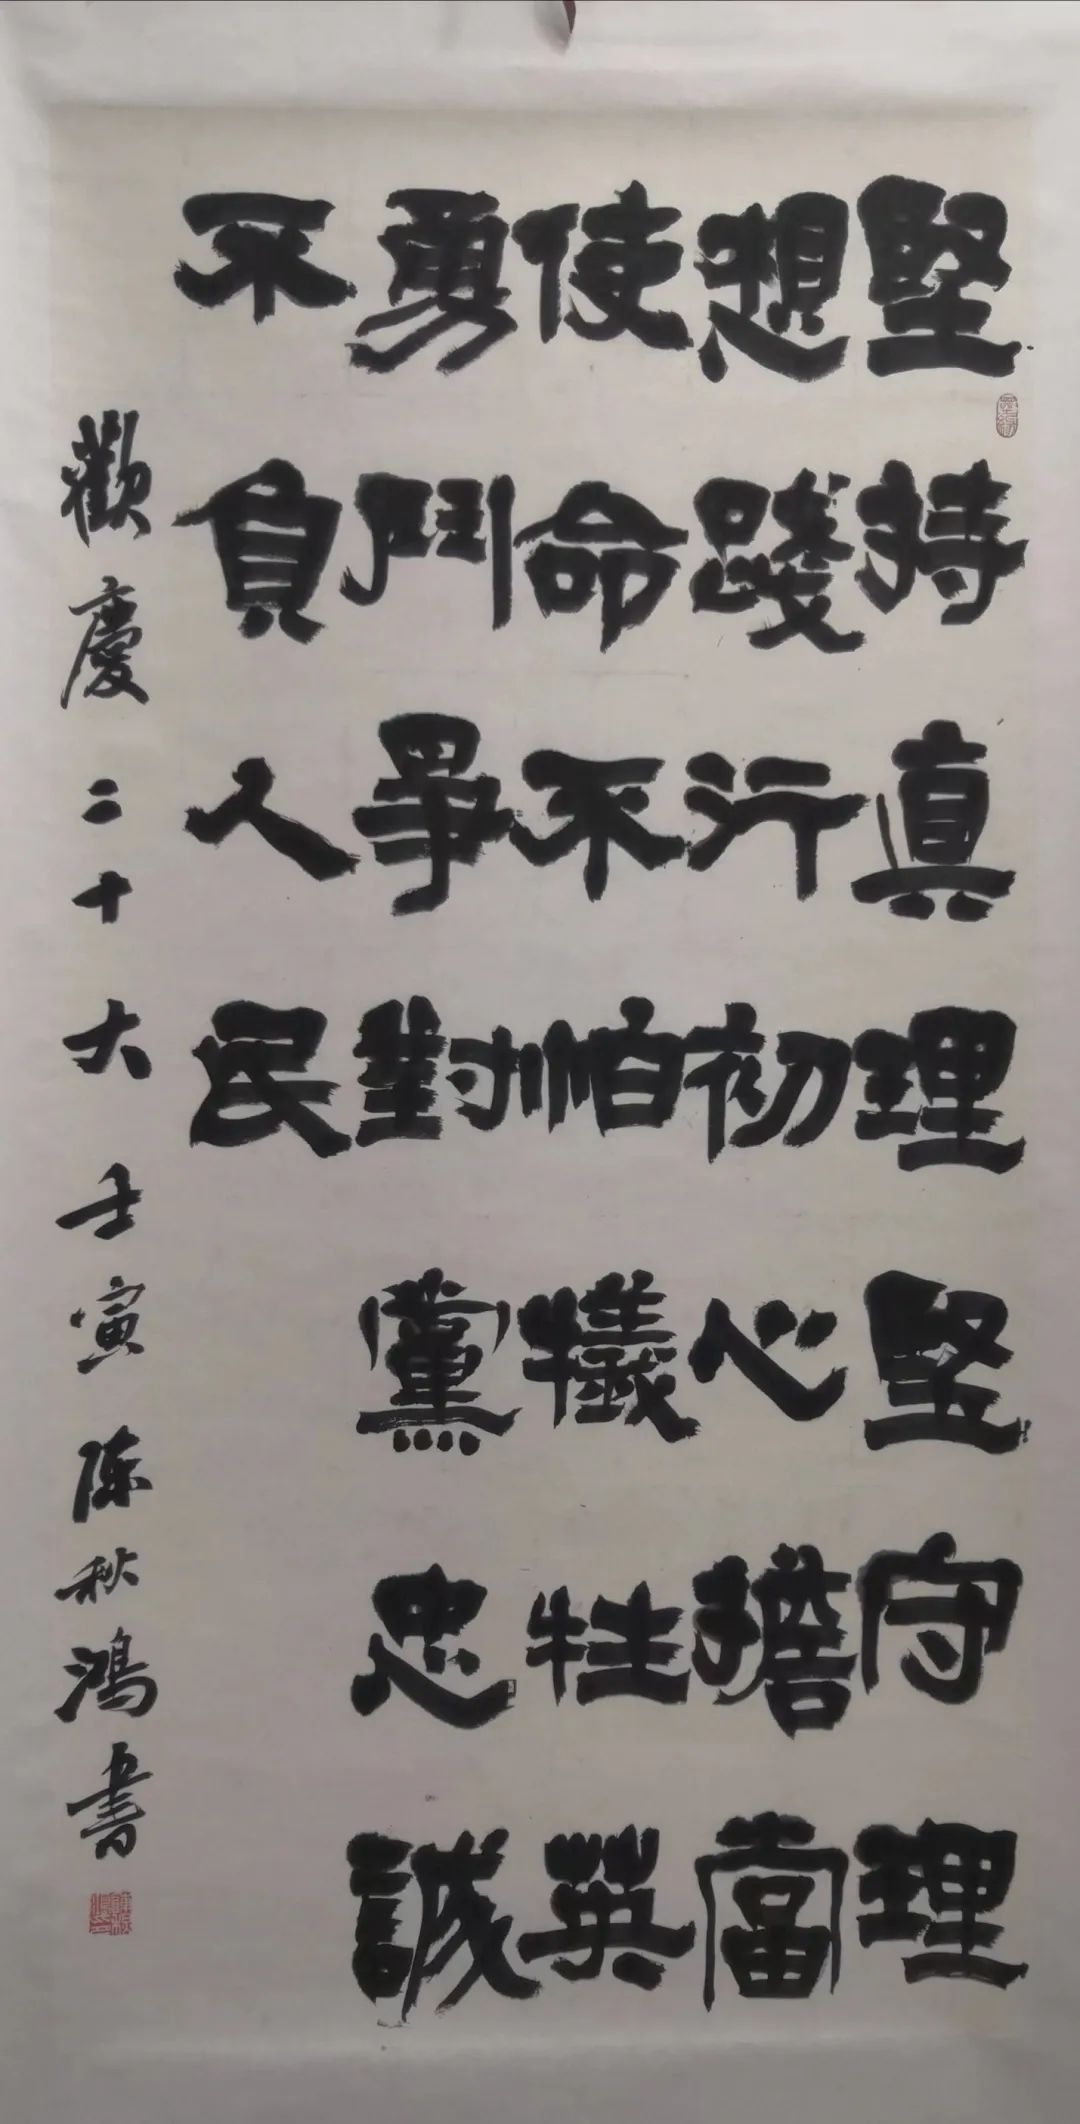 堅持真理堅守理
想踐行初心擔當
使命不怕犧牲英
勇鬥爭對黨忠誠
不負人民
歡慶二十大壬寅陈秋鴻書